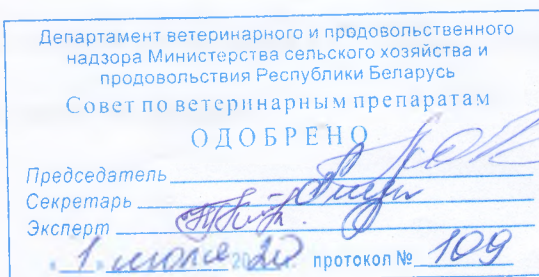 Департамент ветеринарного и продовольственного
надзора Министерства сельского хозяйства и
продовольствия Республики Беларусь
Совет по ветеринарным препаратам
ОДОБРЕНО
Председатель
Секретарь
Эксперт
1 июля 2020 протокол № 109